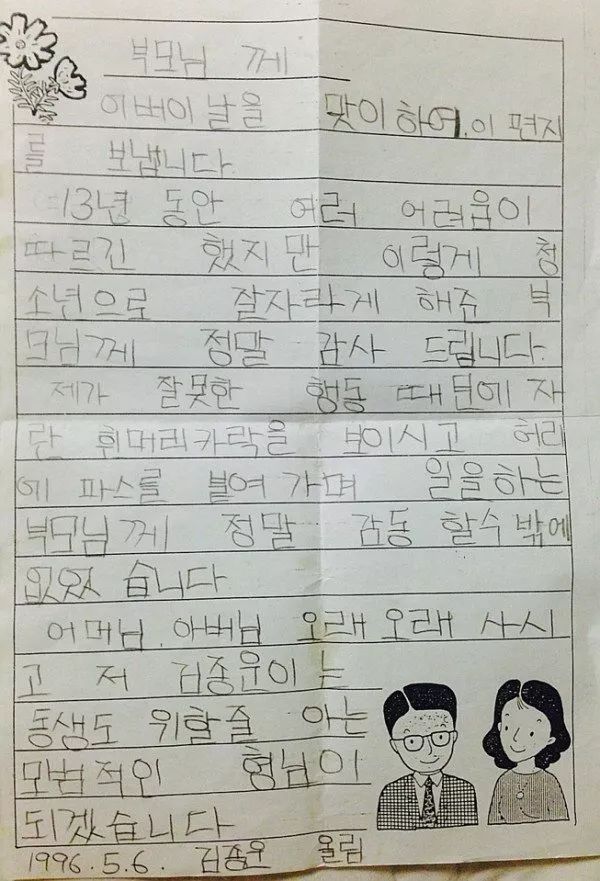 부모님 께
어버이 날을 맞이 하여. 이 편지
를 보냅니다.
13년 동안 여러 어려움이
따르긴 했지만 이렇게 청
소년으로 잘자라게 해준 부
모님께 정말 감사 드립니다.
제가 잘못한 행동 때문에 자
란 흰머리카락을 보이시고 허리
에 파스를 붙여 가며 일을 하는
부모님께 정말 감동 할수 밖에
없었습니다
어머님. 아버님 오래 오래 사시
고 저 김종운이는
동생도 위할줄 아는
모범적인 형님이
되겠습니다
1996. 5. 6. 김종운 올림